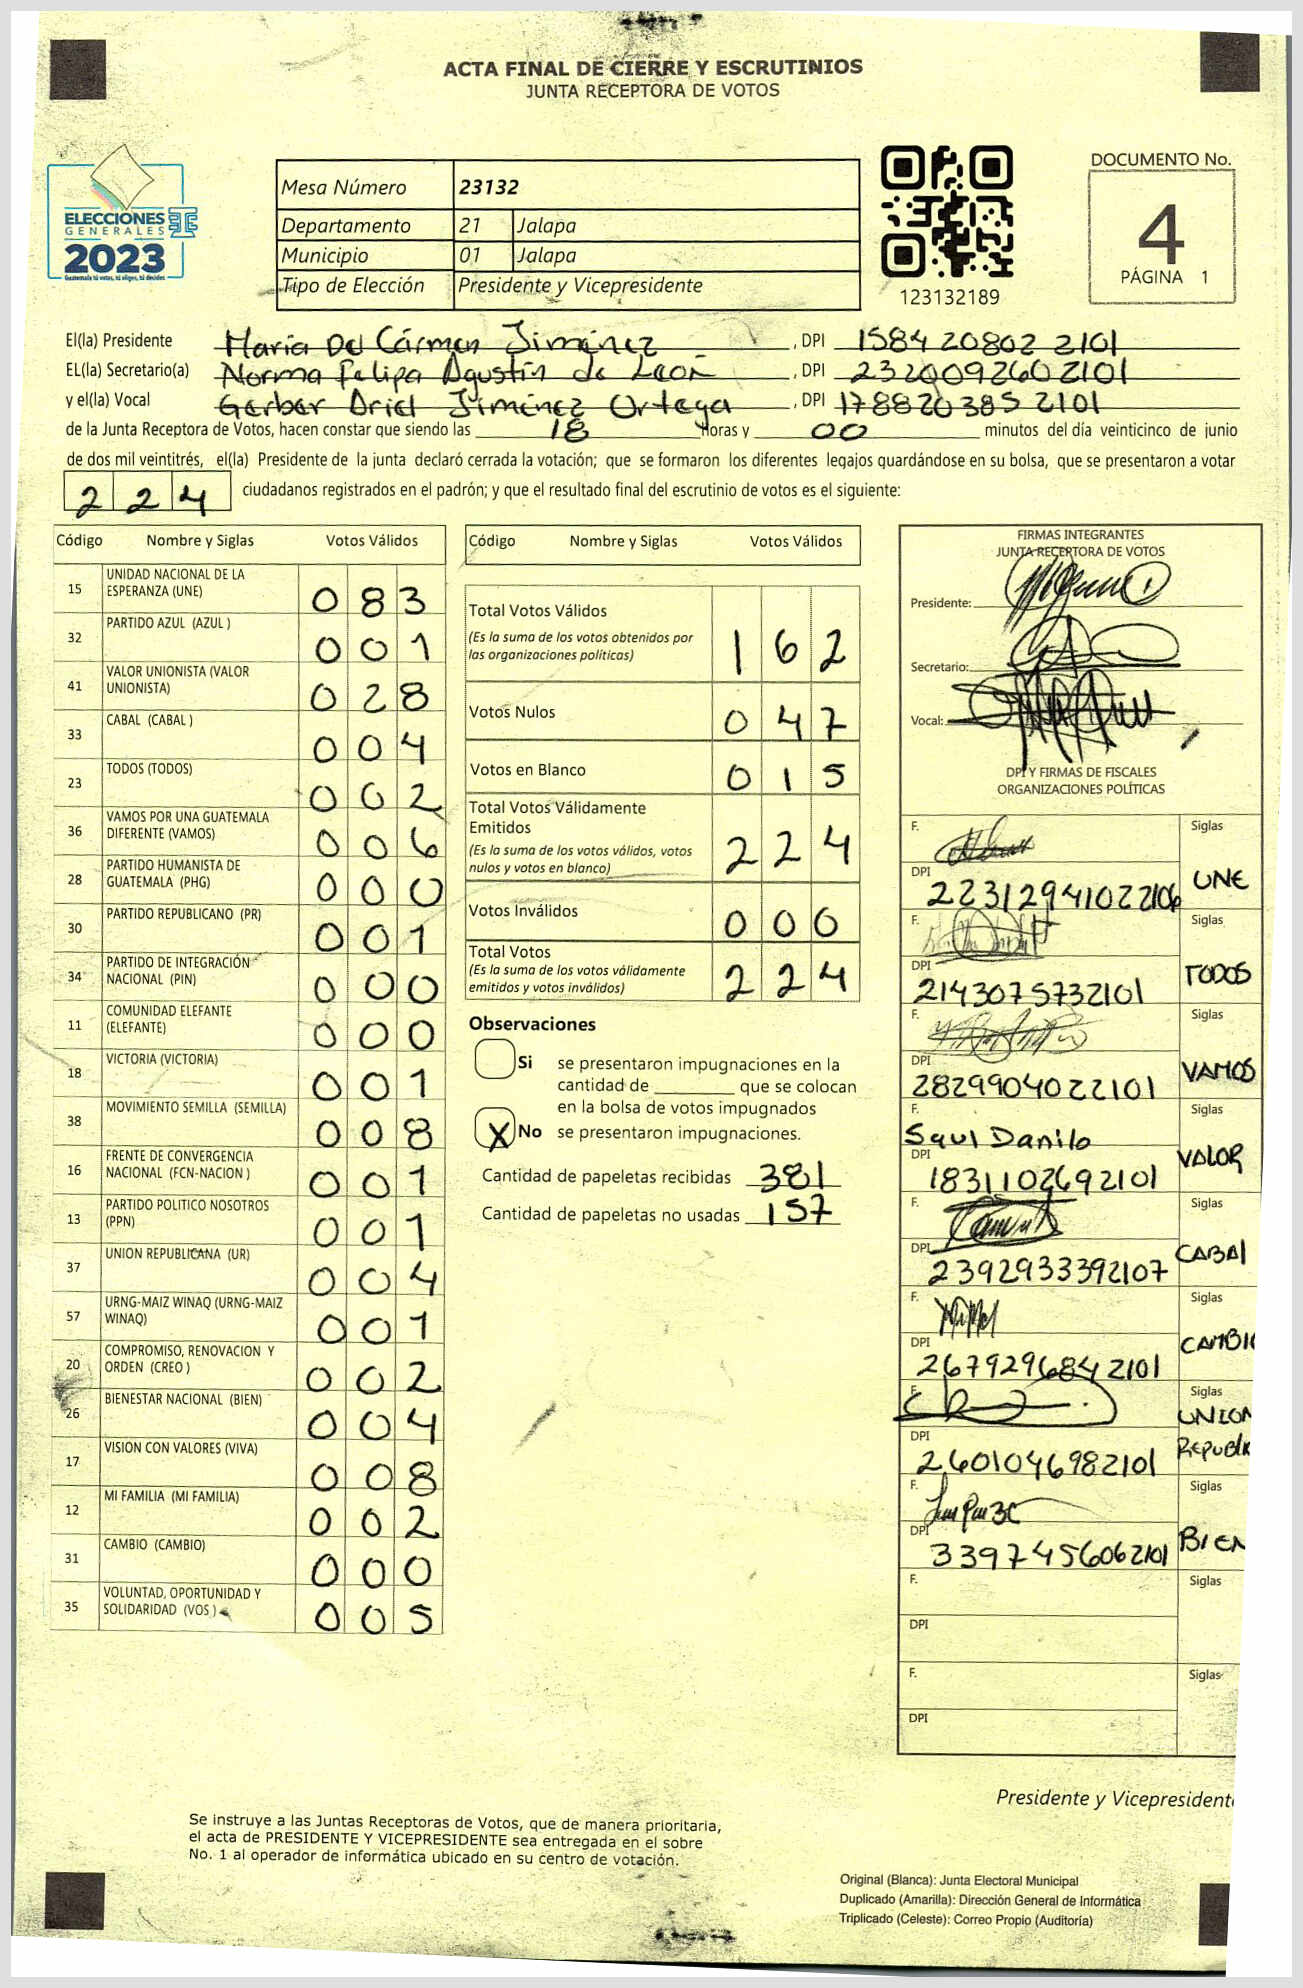 ACTA FINAL DE CIERRE Y ESCRUTINIOS
JUNTA RECEPTORA DE VOTOS
ELECCIONES
GENERALES
2023
Guatemala tú votas, tú eliges, tú decides
Mesa Número 23132
Departamento 21 Jalapa
Municipio 01 Jalapa
Tipo de Elección Presidente y Vicepresidente
123132189
DOCUMENTO No.
4
PÁGINA 1
El(la) Presidente Maria Del Cármen Jiménez, DPI 1584 20802 2101
EL(la) Secretario(a) Norma Felipa Agustín de León, DPI 2320092602101
y el(la) Vocal Gerber Oriel Jiménez Ortega, DPI 178820385 2101
de la Junta Receptora de Votos, hacen constar que siendo las 18 Horas y 00 minutos del día veinticinco de junio
de dos mil veintitrés, el(la) Presidente de la junta declaró cerrada la votación; que se formaron los diferentes legajos quardándose en su bolsa, que se presentaron a votar
224 ciudadanos registrados en el padrón; y que el resultado final del escrutinio de votos es el siguiente:
Código Nombre y Siglas Votos Válidos
15 UNIDAD NACIONAL DE LA ESPERANZA (UNE) 083
32 PARTIDO AZUL (AZUL ) 001
41 VALOR UNIONISTA (VALOR UNIONISTA) 028
33 CABAL (CABAL ) 004
23 TODOS (TODOS) 002
36 VAMOS POR UNA GUATEMALA DIFERENTE (VAMOS) 006
28 PARTIDO HUMANISTA DE GUATEMALA (PHG) 000
30 PARTIDO REPUBLICANO (PR) 001
34 PARTIDO DE INTEGRACIÓN NACIONAL (PIN) 000
11 COMUNIDAD ELEFANTE (ELEFANTE) 000
18 VICTORIA (VICTORIA) 001
38 MOVIMIENTO SEMILLA (SEMILLA) 008
16 FRENTE DE CONVERGENCIA NACIONAL (FCN-NACION ) 001
13 PARTIDO POLITICO NOSOTROS (PPN) 001
37 UNION REPUBLICANA (UR) 004
57 URNG-MAIZ WINAQ (URNG-MAIZ WINAQ) 001
20 COMPROMISO, RENOVACION Y ORDEN (CREO ) 002
26 BIENESTAR NACIONAL (BIEN) 004
17 VISION CON VALORES (VIVA) 008
12 MI FAMILIA (MI FAMILIA) 002
31 CAMBIO (CAMBIO) 000
35 VOLUNTAD, OPORTUNIDAD Y SOLIDARIDAD (VOS ) 005
Código Nombre y Siglas Votos Válidos
Total Votos Válidos 162
(Es la suma de los votos obtenidos por
las organizaciones políticas)
Votos Nulos 047
Votos en Blanco 015
Total Votos Válidamente
Emitidos 224
(Es la suma de los votos válidos, votos
nulos y votos en blanco)
Votos Inválidos 000
Total Votos 224
(Es la suma de los votos válidamente
emitidos y votos inválidos)
Observaciones
Si se presentaron impugnaciones en la
cantidad de ________ que se colocan
en la bolsa de votos impugnados
X No se presentaron impugnaciones.
Cantidad de papeletas recibidas 381
Cantidad de papeletas no usadas 157
FIRMAS INTEGRANTES
JUNTA RECEPTORA DE VOTOS
Presidente:
Secretario:
Vocal:
DPI Y FIRMAS DE FISCALES
ORGANIZACIONES POLÍTICAS
F. Siglas
DPI 22312941022106 UNE
F. Siglas
DPI 2143075732101 TODOS
F. Siglas
DPI 2829904022101 VAMOS
F. Saul Danilo Siglas
DPI 1831102692101 VALOR
F. Siglas
DPI 2392933392107 CABAl
F. Siglas
DPI 2679296842101 CAMBIO
F. Siglas
DPI 2601046982101 UNION
REPUBLI
F. Siglas
DPI 3397456062101 BIEN
F. Siglas
DPI
F. Siglas
DPI
Presidente y Vicepresidente
Se instruye a las Juntas Receptoras de Votos, que de manera prioritaria,
el acta de PRESIDENTE Y VICEPRESIDENTE sea entregada en el sobre
No. 1 al operador de informática ubicado en su centro de votación.
Original (Blanca): Junta Electoral Municipal
Duplicado (Amarilla): Dirección General de Informática
Triplicado (Celeste): Correo Propio (Auditoría)